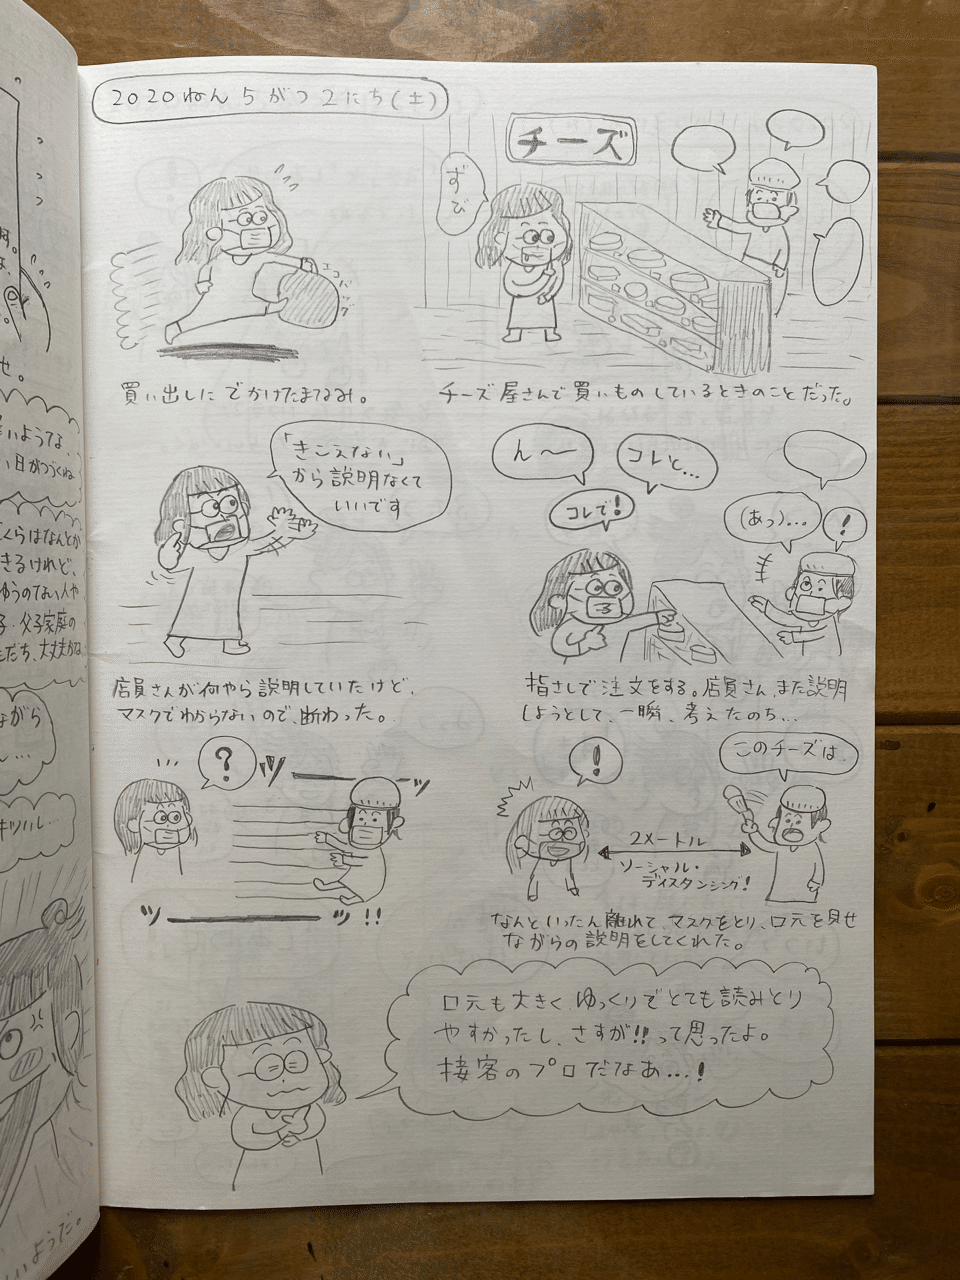 2020ねん5がつ2にち(土)
エコバッグ
買い出しにでかけたまなみ。
チーズ
ずび
チーズ屋さんで買いものしているときのことだった。
「きこえない」
から説明なくて
いいです
店員さんが何やら説明していたけど、
マスクでわからないので、断わった。
ん〜
コレと...
コレで!
(あっ)...
!
指さしで注文をする。店員さん、また説明
しようとして、一瞬、考えたのち...
?
ツーーッ
ツーーッ!!
!
このチーズは、
2メートル
ソーシャル・
ディスタンシング!
なんといったん離れて、マスクをとり、口元を見せ
ながらの説明をしてくれた。
口元も大きく、ゆっくりでとても読みとり
やすかったし、さすが!!って思ったよ。
接客のプロだなあ...!
せ。
いようてな、
い日がつづくね
くらはなんとか
きるけれど、
ゆうのない人や
子・父子家庭の
だち、大丈夫かな
ながら
ようだ。